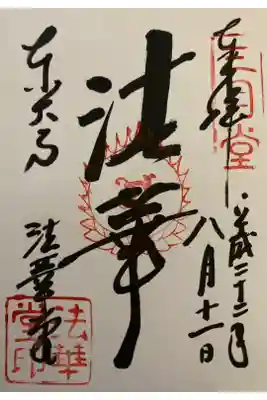 奉拝
平成二十二年
八月十一日
法華
東大寺
法華堂
法華堂印